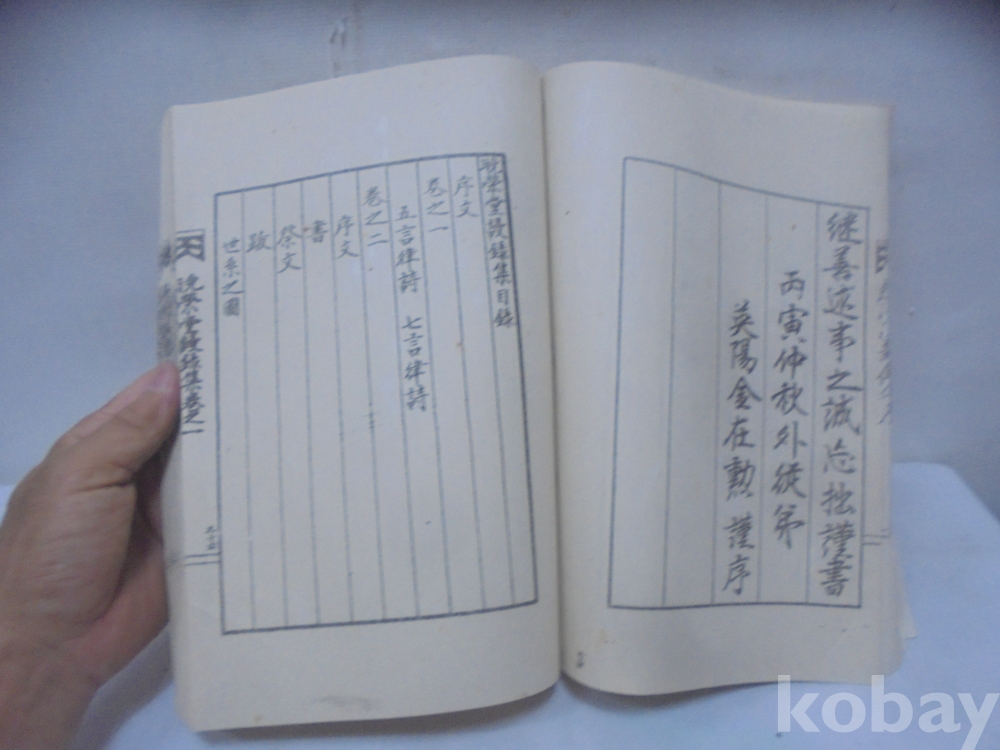 継善述事之誠忘拙謹書
丙寅仲秋外從弟
英陽金在勲 謹序
晩榮堂謾錄集目錄
序文
卷之一
五言律詩 七言律詩
卷之二
序文
書
祭文
跋
世系之圖
晩榮堂謾錄集卷之一
kobay